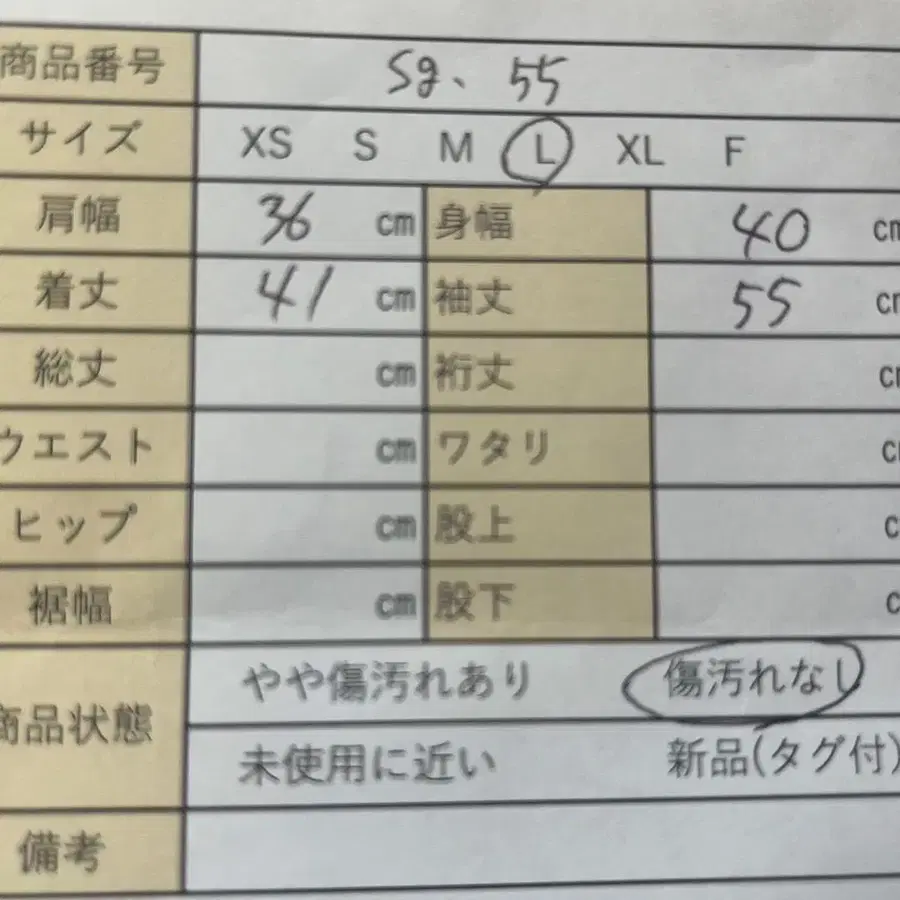 商品番号 Sg、55
サイズ XS S M L XL F
肩幅 36 cm 身幅 40 cm
着丈 41 cm 袖丈 55 cm
総丈 cm 裄丈 cm
ウエスト cm ワタリ cm
ヒップ cm 股上 c
裾幅 cm 股下 c
商品状態 やや傷汚れあり 傷汚れなし
未使用に近い 新品(タグ付)
備考